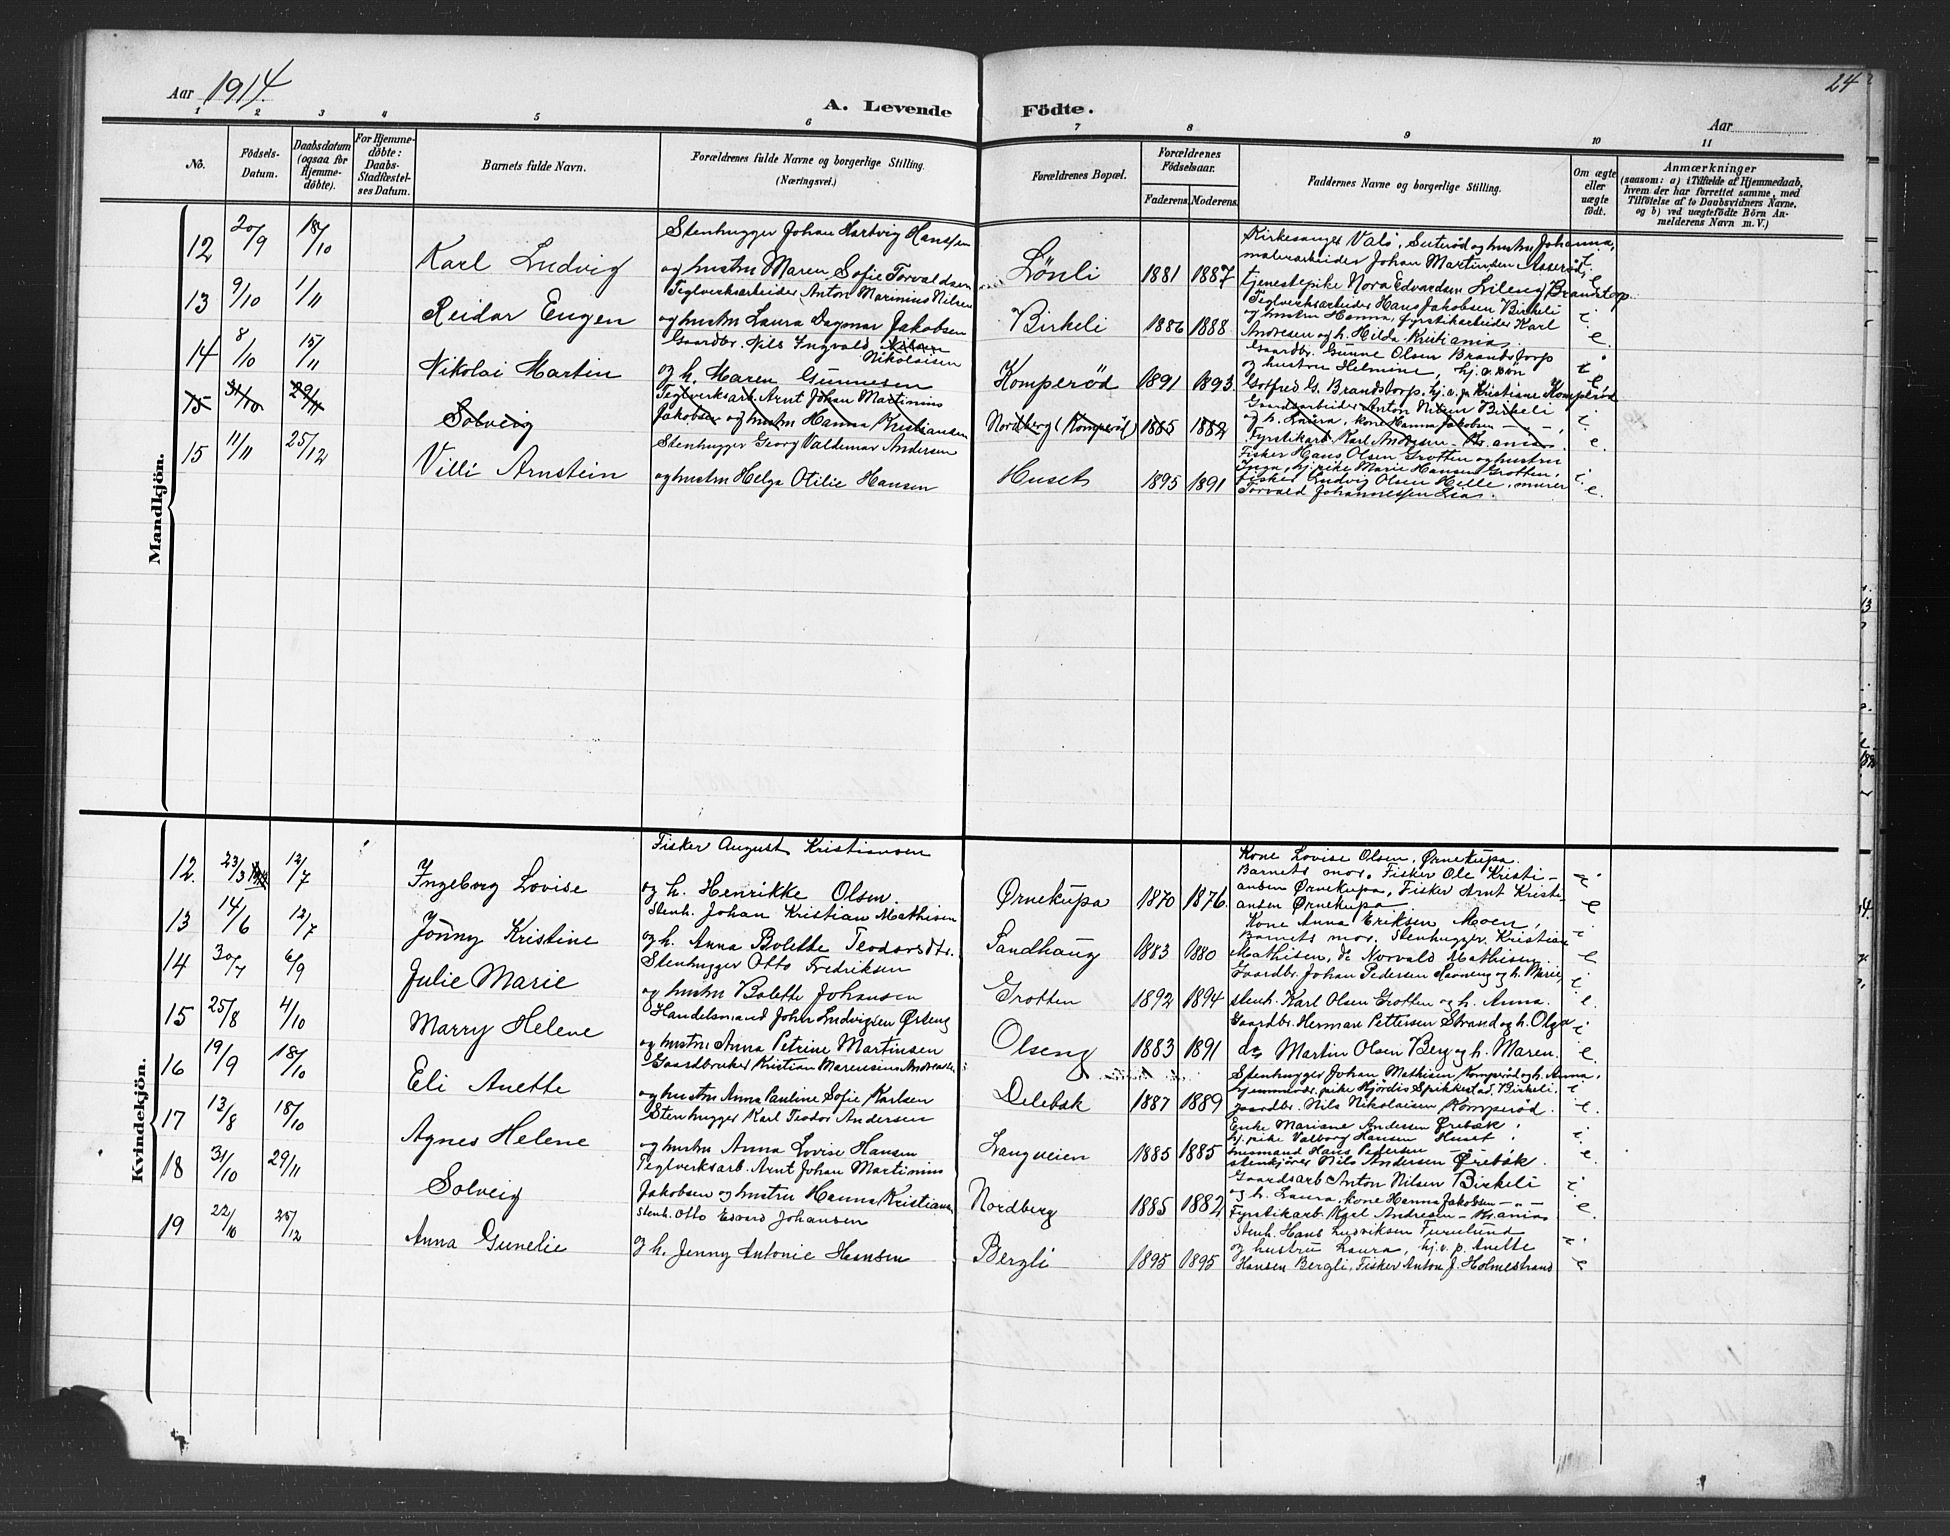 Aar 1914.
A. Levende Födte.
24
Aar
1 2 3 4 5 6 7 8 9 10 11
No.
Födsels-Datum.
Daabsdatum (ogsaa for Hjemme-döbte).
For Hjemme-döbte: Daabs-Stadfæstel-ses Datum.
Barnets fulde Navn.
Forældrenes fulde Navne og borgerlige Stilling. (Næringsvei.)
Forældrenes Bopæl.
Forældrenes Födselsaar.
Faderens. Moderens.
Faddernes Navne og borgerlige Stilling.
Om ægte eller uægte födt.
Anmærkninger
(saasom: a) i Tilfælde af Hjemmedaab, hvem der har forrettet samme, med Tilföielse af to Daabsvidners Navne, og b) ved uægtefödte Börn An-melderens Navn m. V.)
Mandkjön.
12 20/9 18/10 Karl Ludvig
Stenhugger Johan Hartvig Hanssen
og hustru Maren Sofie Torvaldsen
Lönli 1881 1887
Kirkesanger Valö, Suteröd og hustru Johanna,
malerarbeider Johan Martinsen Asseröd,
tjenestepike Nora Edvardsen Lileng, Brandstorp.
13 9/10 1/11 Reidar Eugen
Teglverksarbeider Anton Marinius Nilsen
og hustru Laura Dagmar Jakobsen
Birkeli 1886 1888
Teglverksarbeider Hans Jakobsen Birkeli
og hustru Hanna, fyrstikarbeider Karl
Andresen og h. Hilda Kristiania.
14 8/10 15/11 Nikolai Martin
Gaardbr. Nils Ingvald
Nikolaisen
og h. Maren Gunnesen
Komperød 1891 1893.
Gaardbr. Gunne Olsen Brandstorp
og hustru Helmine,
Gotfred G. Brandstorp, hj. v. p. Kristiane Komperød
15 31/10 29/11 Solveig
Teglverksark. Arnt Johan Martinius
Jakobsen og hustru Hanna Kristiansen
Nordberg (Komperød) 1885 1882
Gaardsarbeider Anton Nilsen Birkeli
og h. Laura, kone Hanna Jakobsen - - -,
Fyrstikarb. Karl Andresen - Kr.ania.
15 11/11 25/12 Villi Arnstein
Stenhugger Georg Valdemar Andersen
og hustru Helga Otilie Hansen
Huset 1895 1891
Fisker Hans Olsen Grotten og hustru
Inga, hj. pike Marie Hansen Grotten,
fisker Ludvig Olsen Hille, murer
Torvald Johannessen Lia.
Kvindekjön.
12. 23/3 12/7 Ingeborg Lovise
Fisker August Kristiansen
og h. Henrikke Olsen.
Ørnekupa 1870 1876.
Kone Lovise Olsen, Ørnekupa.
Barnets mor, Fisker Ole Kristi-
ansen Ørnekupa, Fisker Arnt Kristi
ansen Ørnekupa
13 14/6 12/7 Jönny Kristine
Stenh. Johan Kristian Mathisen
og h. Anna Bolette Teodorsdtr.
Sandhaug 1883 1880
Kone Anna Eriksen Moen,
Barnets mor. Stenhugger Kristian
Mathisen, do Norvald Mathisen
14 30/7 6/9 Julie Marie
Stenhugger Otto Fredriksen
og hustru Bolette Johansen
Grotten 1892 1894
Gaardbr. Johan Pedersen Haavneng og h. Marie,
stenh. Karl Olsen Grotten og h. Anna.
15 25/8 4/10 Marry Helene
Handelsmand Johan Ludvigsen Örseng
og hustru Anna Petrine Martinsen
Olseng 1883 1891
Gaardbr. Herman Pettersen Strand og h. Olga
do Martin Olsen Berg og h. Maren.
16 19/9 18/10 Eli Anette
Gaardbruker Kristian Marensius Andresen
og hustru Anna Pauline Sofie Karlsen
Delebæk 1887 1889
Stenhugger Johan Mathisen Komperød og h. Anna,
hjemmevr. pike Hjördis Spikkestad, Birkeli,
gaardbr. Nils Nikolaisen Komperød.
17 13/8 18/10 Agnes Helene
Stenhugger Karl Teodor Andersen
og hustru Anna Lovise Hansen
Langveien 1885 1885
Enke Mariane Andersen Ørebæk,
hj. pike Valborg Hansen Huset,
husmand Hans Pedersen
stenkjörer Nils Andersen Ørebæk.
18 31/10 29/11 Solveig
Teglverksarb. Arnt Johan Martinius
Jakobsen og hustru Hanna Kristiansen
Nordberg 1885 1882
Gaardsarb Anton Nilsen Birkeli
og h. Laura, kone Hanna Jakobsen - - -
Fyrstikarb. Karl Andresen - Kr.ania
19 22/10 25/12 Anna Gunelie
Stenh. Otto Edvard Johansen
og h. Jenny Antonie Hansen
Bergli 1895 1895
Stenh. Hans Ludviksen Furulund
og hustru Laura, hj.v.p. Anette
Hansen Bergli, Fisker Anton J. Holmestrand